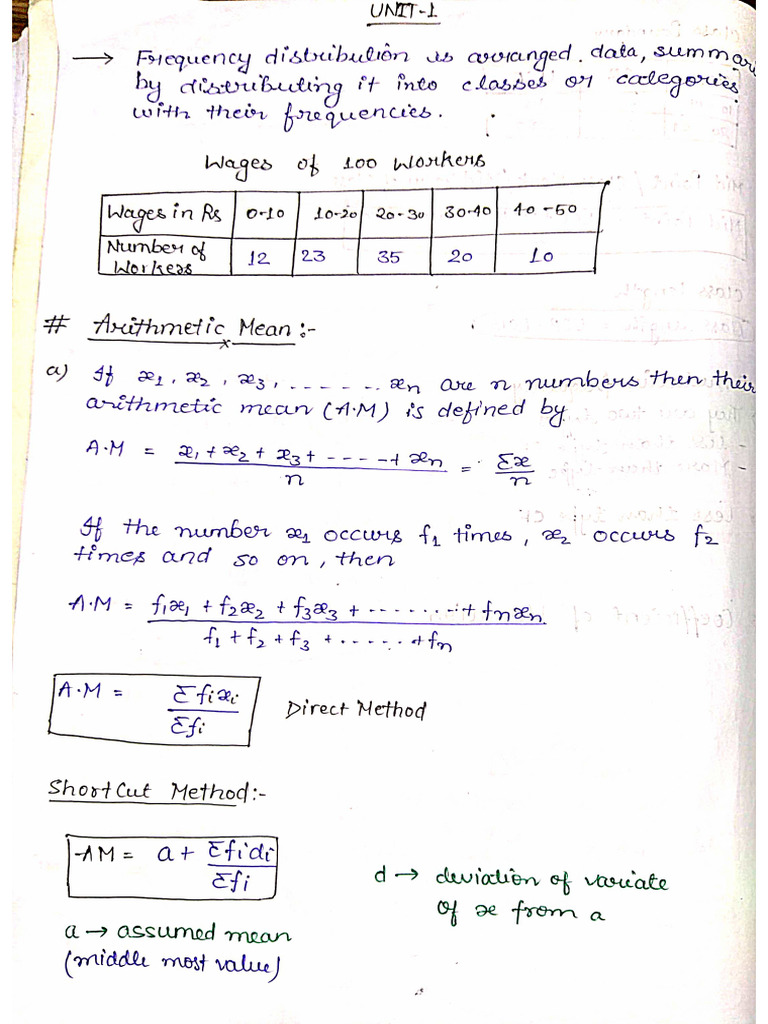 UNIT-1
→ Frequency distribution is arranged data, summari
by distributing it into classes or categories
with their frequencies.
Wages of 100 Workers
Wages in Rs | 0-10 | 10-20 | 20-30 | 30-40 | 40-50
Number of Workers | 12 | 23 | 35 | 20 | 10
# Arithmetic Mean :-
a) If x₁, x₂, x₃, ....... xn are n numbers then their
arithmetic mean (A.M) is defined by
A.M = (x₁ + x₂ + x₃ + ----- + xn)/n = Σx/n
If the number x₁ occurs f₁ times, x₂ occurs f₂
times and so on, then
A.M = (f₁x₁ + f₂x₂ + f₃x₃ + ........ + fnxn)/(f₁ + f₂ + f₃ + ...... + fn)
A.M = Σfixi/Σfi Direct Method
Short Cut Method:-
AM = a + Σfidi/Σfi
d → deviation of variate
of x from a
a → assumed mean
(middle most value)